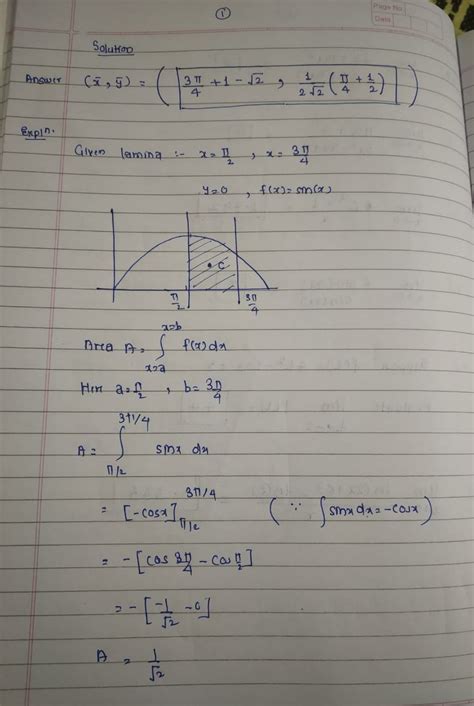 Page No
Date
①
Solution
Answer (x̄, ȳ) = ( 3π/4 + 1 - √2 , 1/2√2 (π/4 + 1/2) )
Expln.
Given lamina :- x = π/2 , x = 3π/4
y=0 , f(x) = sin(x)
C
π/2 3π/4
Area A = ∫ₓ₌ₐˣ⁼ᵇ f(x) dx
Here a = π/2 , b = 3π/4
A = ∫_{π/2}^{3π/4} sinx dx
= [-cosx]_{π/2}^{3π/4} (∵ ∫sinx dx = -cosx)
= -[cos 3π/4 - cos π/2]
= -[-1/√2 - 0]
A = 1/√2